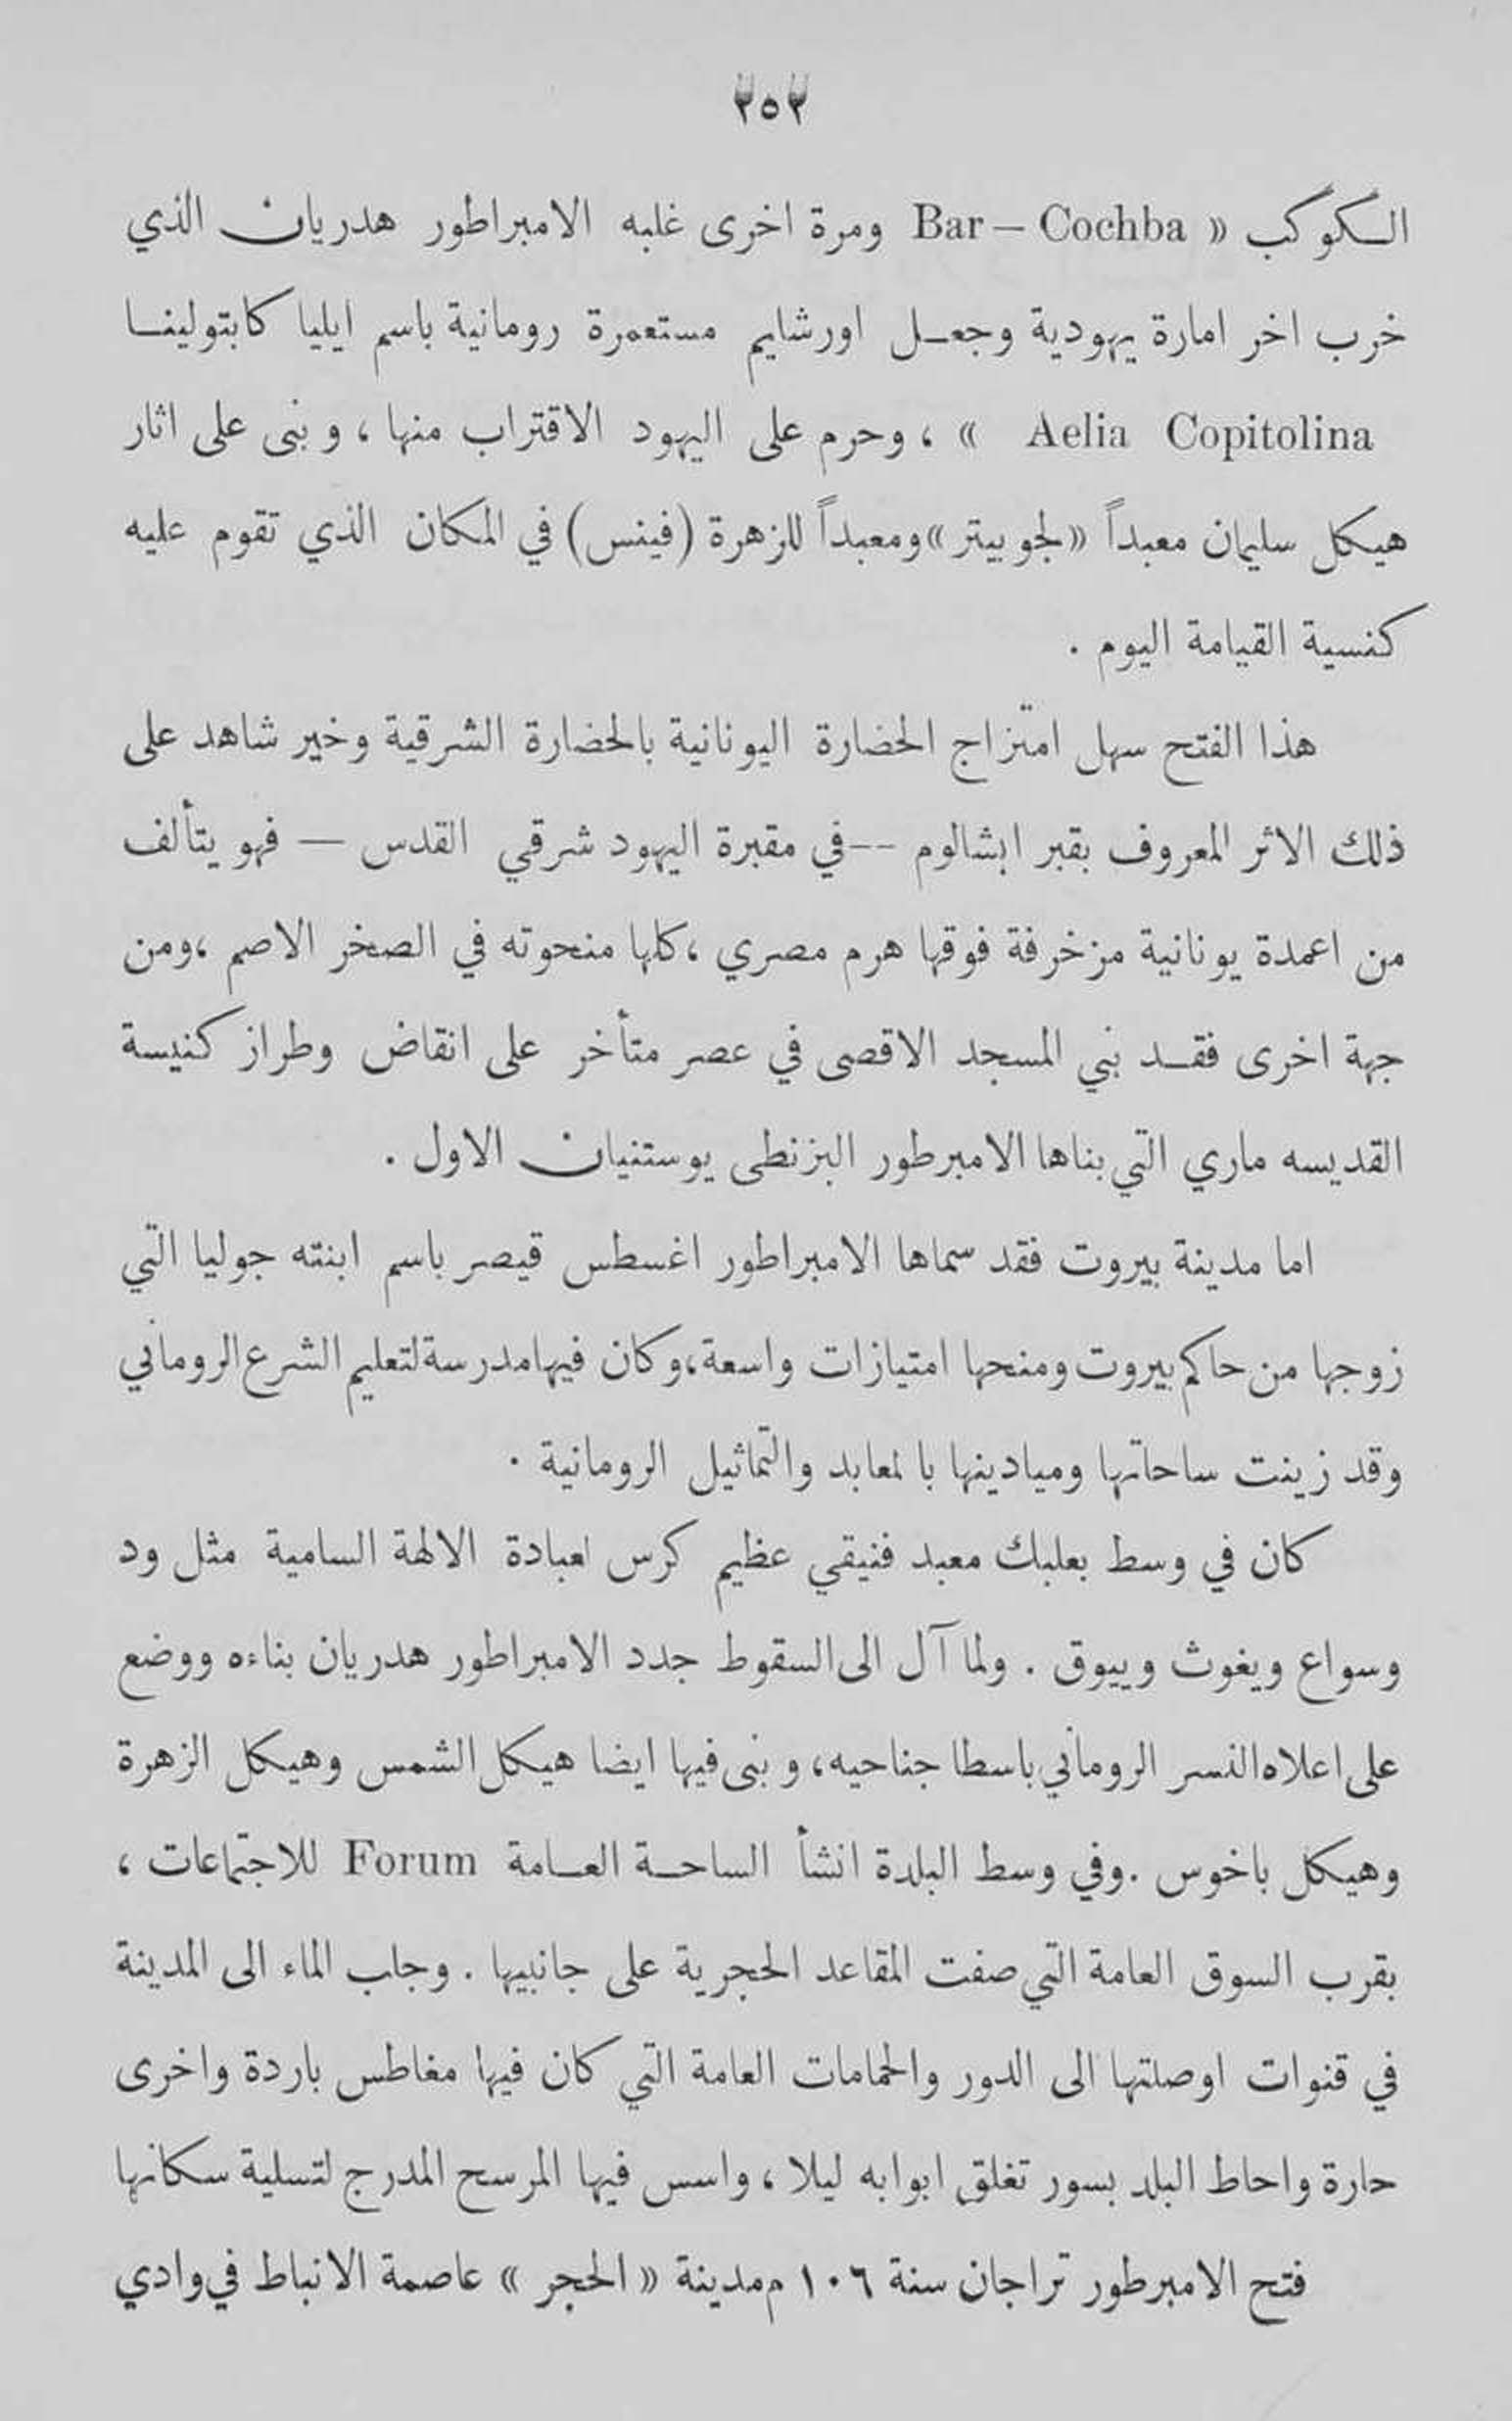 ٢٥٢
الكوكب « Bar – Cochba ومرة اخرى غلبه الامبراطور هدريان الذي
خرب اخر امارة يهودية وجعل اورشايم مستعمرة رومانية باسم ايليا كابتولينا
Aelia Copitolina » ، وحرم على اليهود الاقتراب منها ، وبنى على اثار
هيكل سليمان معبداً «لجوبيتر» ومعبداً للزهرة (فينس) في المكان الذي تقوم عليه
كنسية القيامة اليوم .
هذا الفتح سهل امتزاج الحضارة اليونانية بالحضارة الشرقية وخير شاهد على
ذلك الاثر المعروف بقبر ابشالوم -- في مقبرة اليهود شرقي القدس — فهو يتألف
من اعمدة يونانية مزخرفة فوقها هرم مصري ، كلها منحوته في الصخر الاصم ، ومن
جهة اخرى فقد بني المسجد الاقصى في عصر متأخر على انقاض وطراز كنيسة
القديسه ماري التي بناها الامبرطور البزنطى يوستنيان الاول .
اما مدينة بيروت فقد سماها الامبراطور اغسطس قيصر باسم ابنته جوليا التي
زوجها من حاكم بيروت ومنحها امتيازات واسعة، وكان فيها مدرسة لتعليم الشرع الروماني
وقد زينت ساحاتها وميادينها بالمعابد والتماثيل الرومانية .
كان في وسط بعلبك معبد فنيقي عظيم كرس لعبادة الالهة السامية مثل ود
وسواع ويغوث وييوق . ولما آل الى السقوط جدد الامبراطور هدريان بناءه ووضع
على اعلاه النسر الروماني باسطا جناحيه، وبنى فيها ايضا هيكل الشمس وهيكل الزهرة
وهيكل باخوس . وفي وسط البلدة انشأ الساحة العامة Forum للاجتماعات ،
بقرب السوق العامة التي صفت المقاعد الحجرية على جانبيها . وجلب الماء الى المدينة
في قنوات اوصلتها الى الدور والحمامات العامة التي كان فيها مغاطس باردة واخرى
حارة واحاط البلد بسور تغلق ابوابه ليلا ، واسس فيها المرسح المدرج لتسلية سكانها
فتح الامبرطور تراجان سنة ١٠٦ م مدينة « الحجر » عاصمة الانباط في وادي